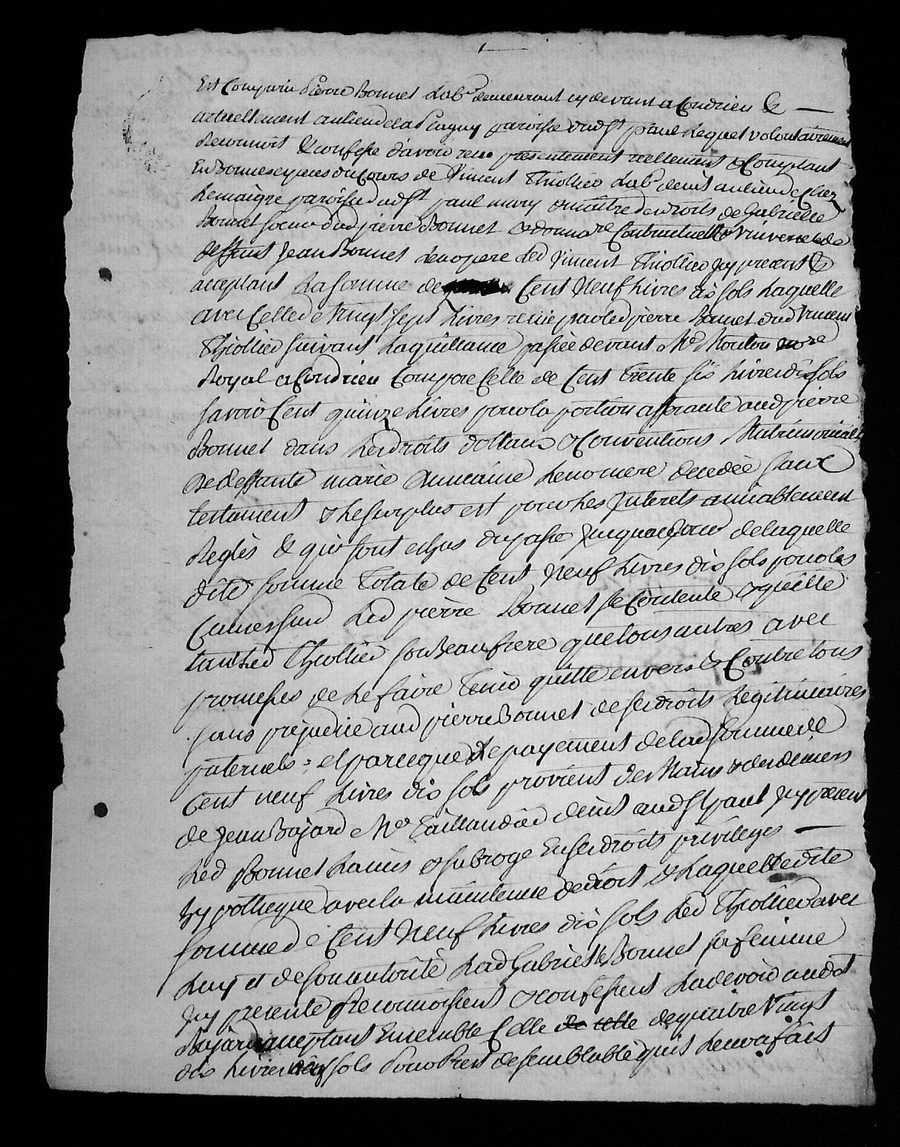 Est Comparu Pierre Bonnet Lab.r demeurant cy devant a Condrieu &
actuellement au lieu de la paroisse dud st paul Lequel volontairement
Reconnoit & confesse d'avoir reçu presentement reellement & Comptant
En Bonnes especes du Cours de Vincent Thiollier Lab.r de cet au lieu de Chez
Lemaigre paroisse dud st paul mary & maitre des droits de Gabrielle
Bonnet soeur dud pierre Bonnet & donnat.re Contractuelle & Universelle de
deffunt Jean Bonnet Leur pere Led Vincent Thiollier icy present &
acceptant La somme de Cent Neuf Livres dix sols Laquelle
avec Celle de Vingt sept Livres reçue par led pierre Bonnet dud Vincent
Thiollier suivant La quittance passée devant M.e Mouton no.re
Royal a Condrieu Compose Celle de Cent trente six Livres dix sols
savoir Cent quinze Livres pour la portion afferante aud pierre
Bonnet dans Les droits dottaux & Conventions Matrimoniales
de deffunte marie Leur mere decedée sans
testament & Le surplus est pour Les Interets amiablement
Reglés & qui sont echus du passé jusqua ce jour de laquelle
dite somme totale de Cent Neuf Livres dix sols pour les
Causes sus d Led pierre Bonnet se Contente & quitte
tant led Thiollier son Beaufrere que tous autres avec
promesses de Le faire tenir quitte envers & Contre tous
sans prejudice aud pierre Bonnet de ses droits Legitimaires
paternels : et parceque Le payement de lad somme de
Cent neuf Livres dix sols provient des Mains & des deniers
de Jean Bajard M.e Taillandier de cet aud st paul icy present
Led Bonnet La mis & subrogé En ses droits privileges
hypotheque avec la de droit & Laquelle dite
somme de Cent Neuf Livres dix sols Led Thiollier avec
Luy et de son autorité Lad Gabrielle Bonnet sa femme
icy presente Reconnoissent & confessent La devoir aud st
Bajard acceptant Ensemble Celle de celle de quatre Vingt
dix Livres sols Pour Prest de semblable qu'il Leur a fait